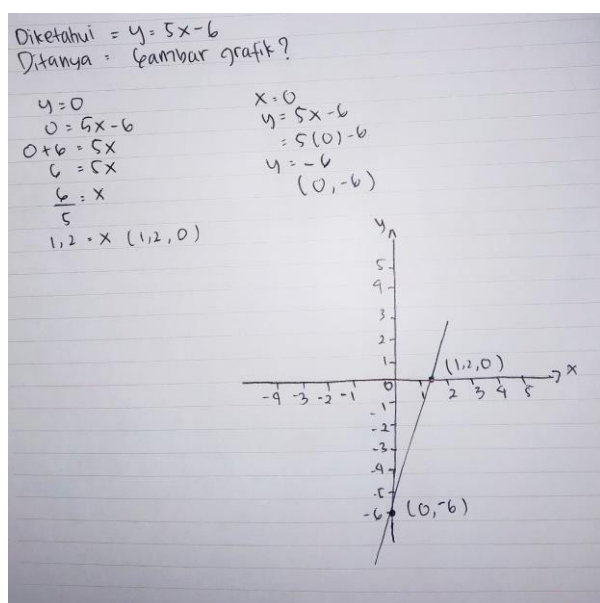 Diketahui = y = 5x - 6
Ditanya = Gambar grafik?
y = 0
0 = 5x - 6
0 + 6 = 5x
6 = 5x
6/5 = x
1,2 = x (1,2, 0)
x = 0
y = 5x - 6
= 5(0) - 6
y = -6
(0, -6)
y
5
4
3
2
1
(1,2, 0)
x
-4 -3 -2 -1 0 1 2 3 4 5
-1
-2
-3
-4
-5
-6 (0, -6)